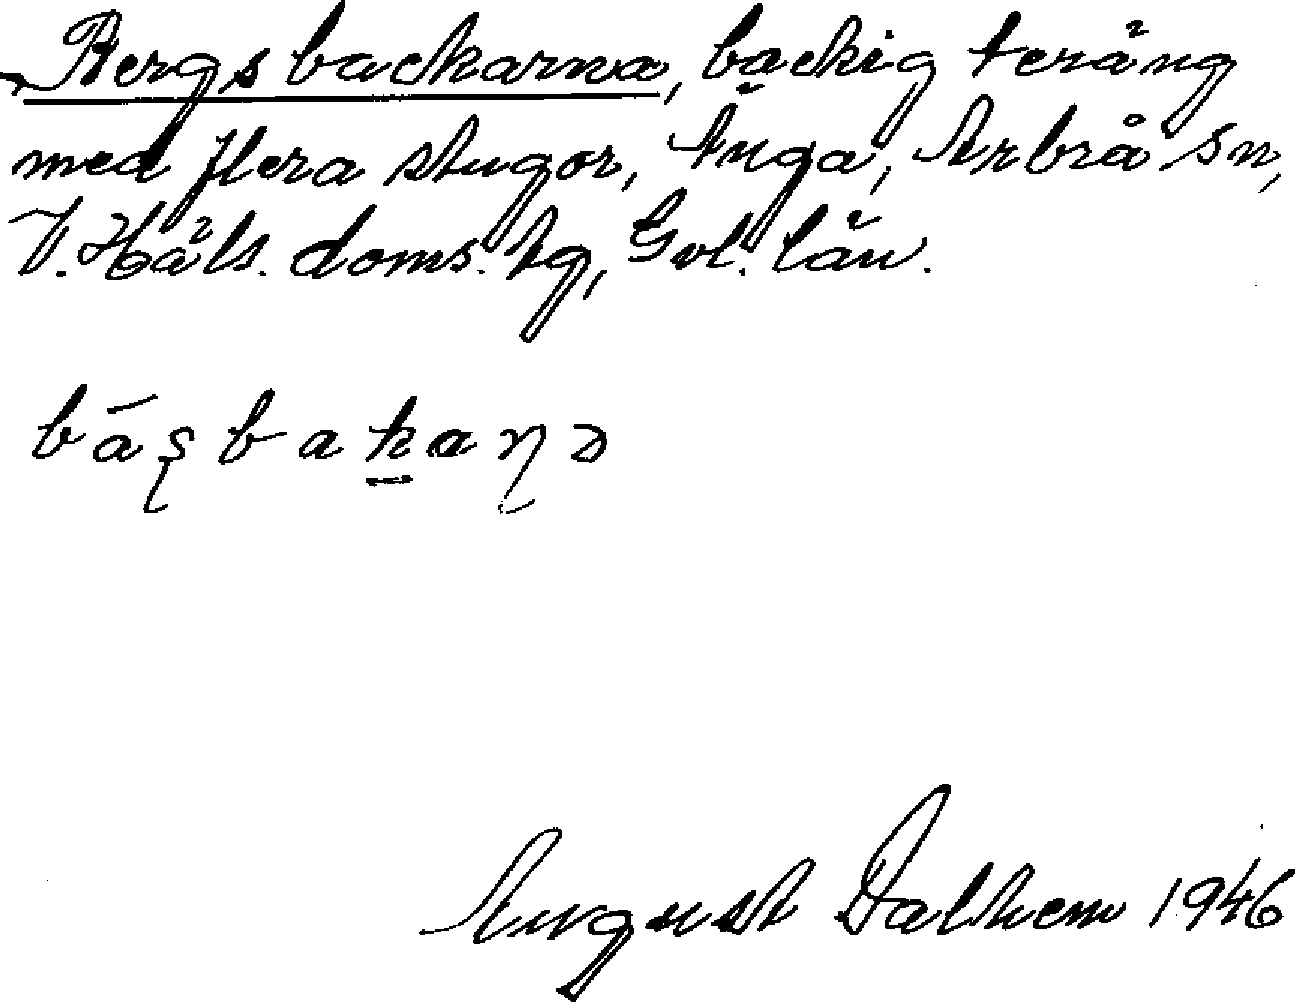 Bergsbackarna, backig teräng
med flera stugor, Änga, Arbrå sn,
V. Häls. doms. tg, Gvl. län.
bá̄ʂbakaɳə
August Dalhem 1946